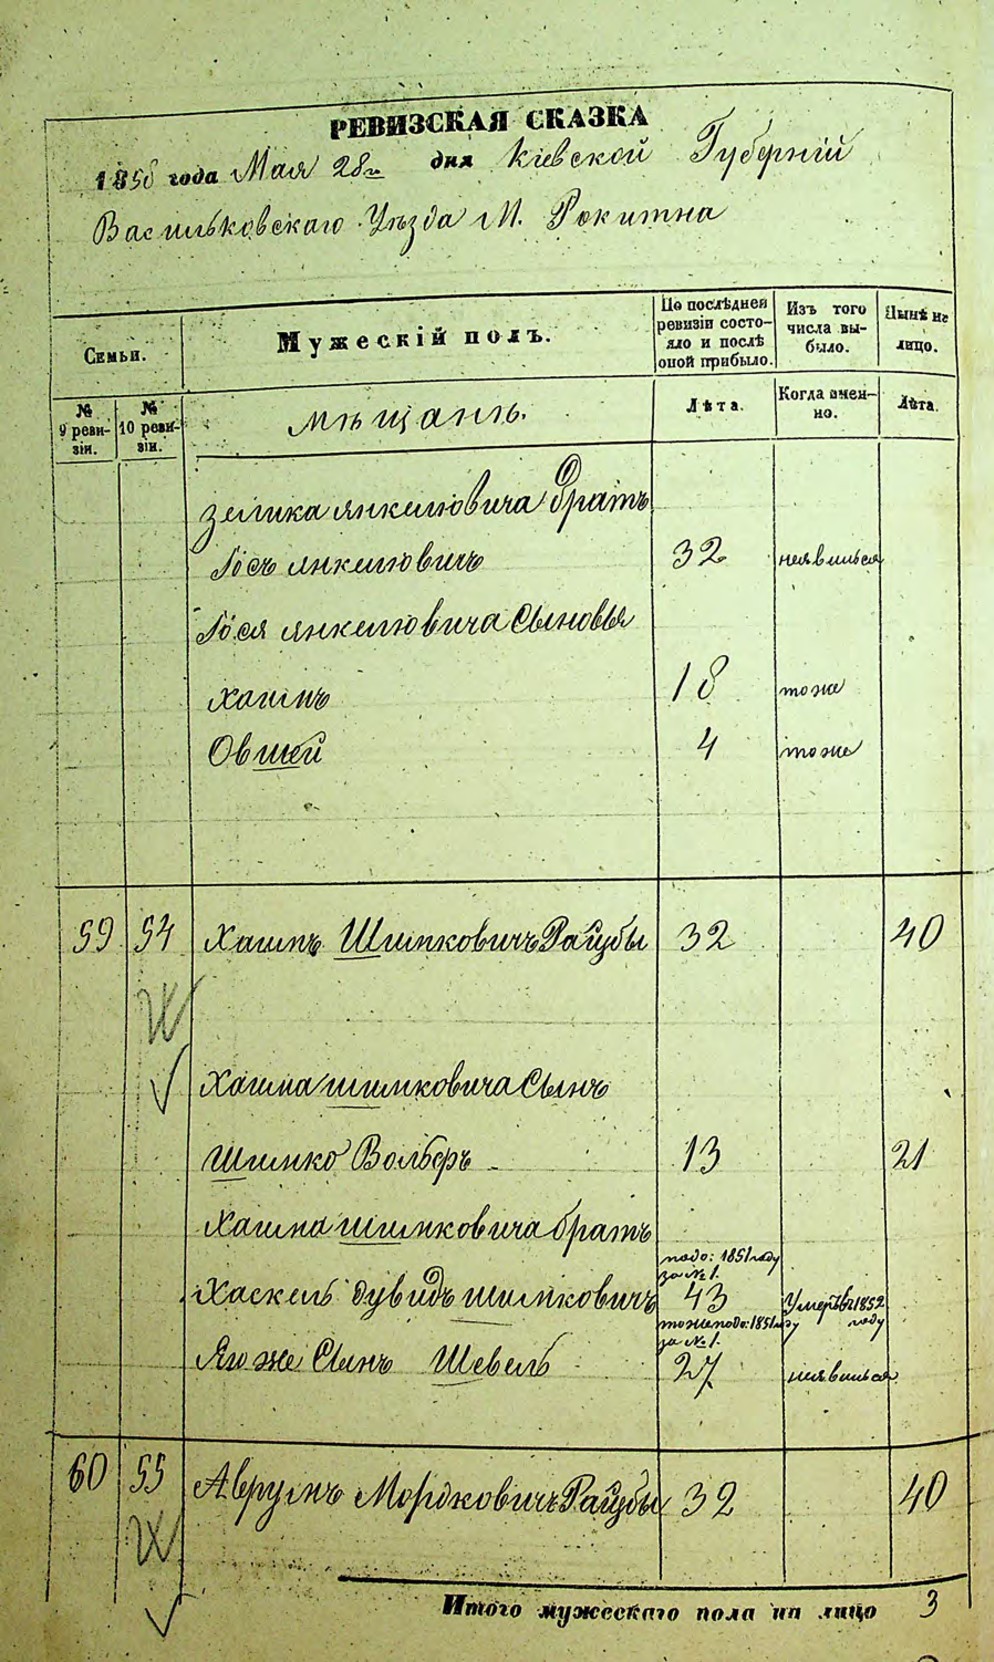 РЕВИЗСКАЯ СКАЗКА
1858 года Мая 28го дня Кіевской Губерніи
Васильковскаго Уѣзда М. Рокитна
Семьи.
Мужескій полъ.
По послѣдней ревизіи состояло и послѣ оной прибыло.
Изъ того числа выбыло.
Нынѣ на лицо.
№ 9 ревизіи.
№ 10 ревизіи.
мѣщанъ.
Лѣта.
Когда именно.
Лѣта.
Зелика Янкелювича братъ
Іось Янкелювичъ 32 неявился
Іося Янкелювича Сыновья
Хаимъ 18 тоже
Овшей 4 тоже
59 54 Хаимъ Шимковичъ Райцбы 32 40
Хаима Шимковича Сынъ
Шимко Вольфъ 13 21
Хаима Шимковича братъ
подо: 1851 году за № 1.
Хаскель Дувидъ Шимковичъ 43 Умеръ въ 1852 году
тоже подо: 1851 году за № 1.
Его же Сынъ Шевель 27 неявился
60 55 Аврумъ Мордковичъ Райцбы 32 40
Итого мужескаго пола на лицо 3